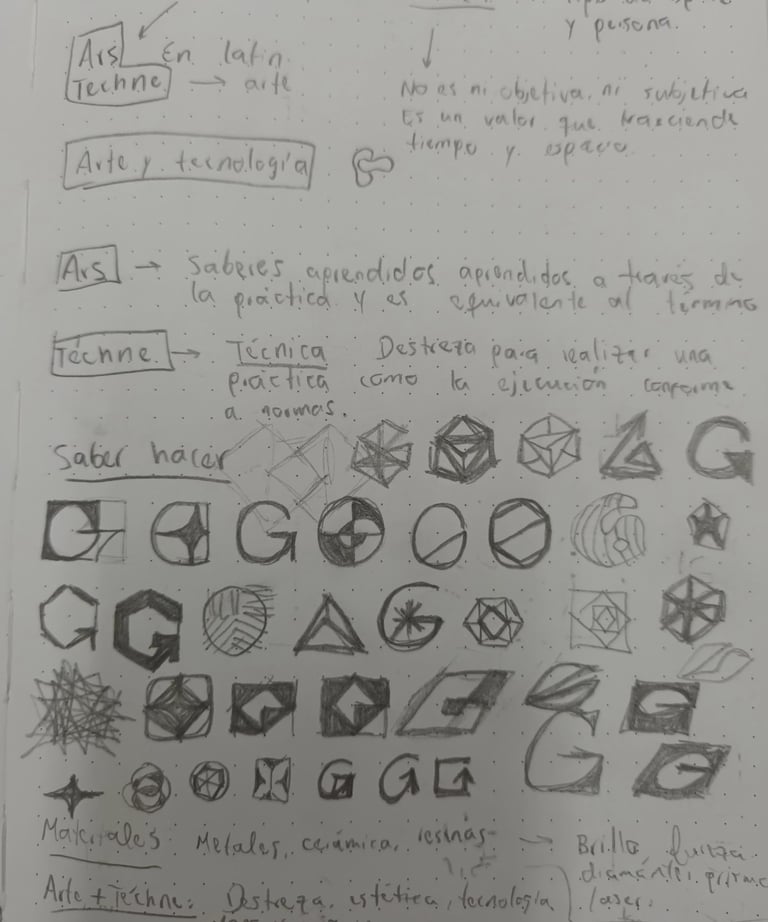 y persona.
Ars En latin
Techne → arte
No es ni objetiva, ni subjetiva
Es un valor que trasciende
tiempo y espacio.
Arte y tecnología
Ars → Saberes aprendidos aprendidos a través de
la práctica y es equivalente al término
Téchne → Técnica Destreza para realizar una
práctica como la ejecución conforme
a normas.
Saber hacer
Materiales: Metales, cerámica, resinas → Brillo, fuerza
diamante, prisma
laser.
Arte + Téchne: Destreza, estética, tecnología